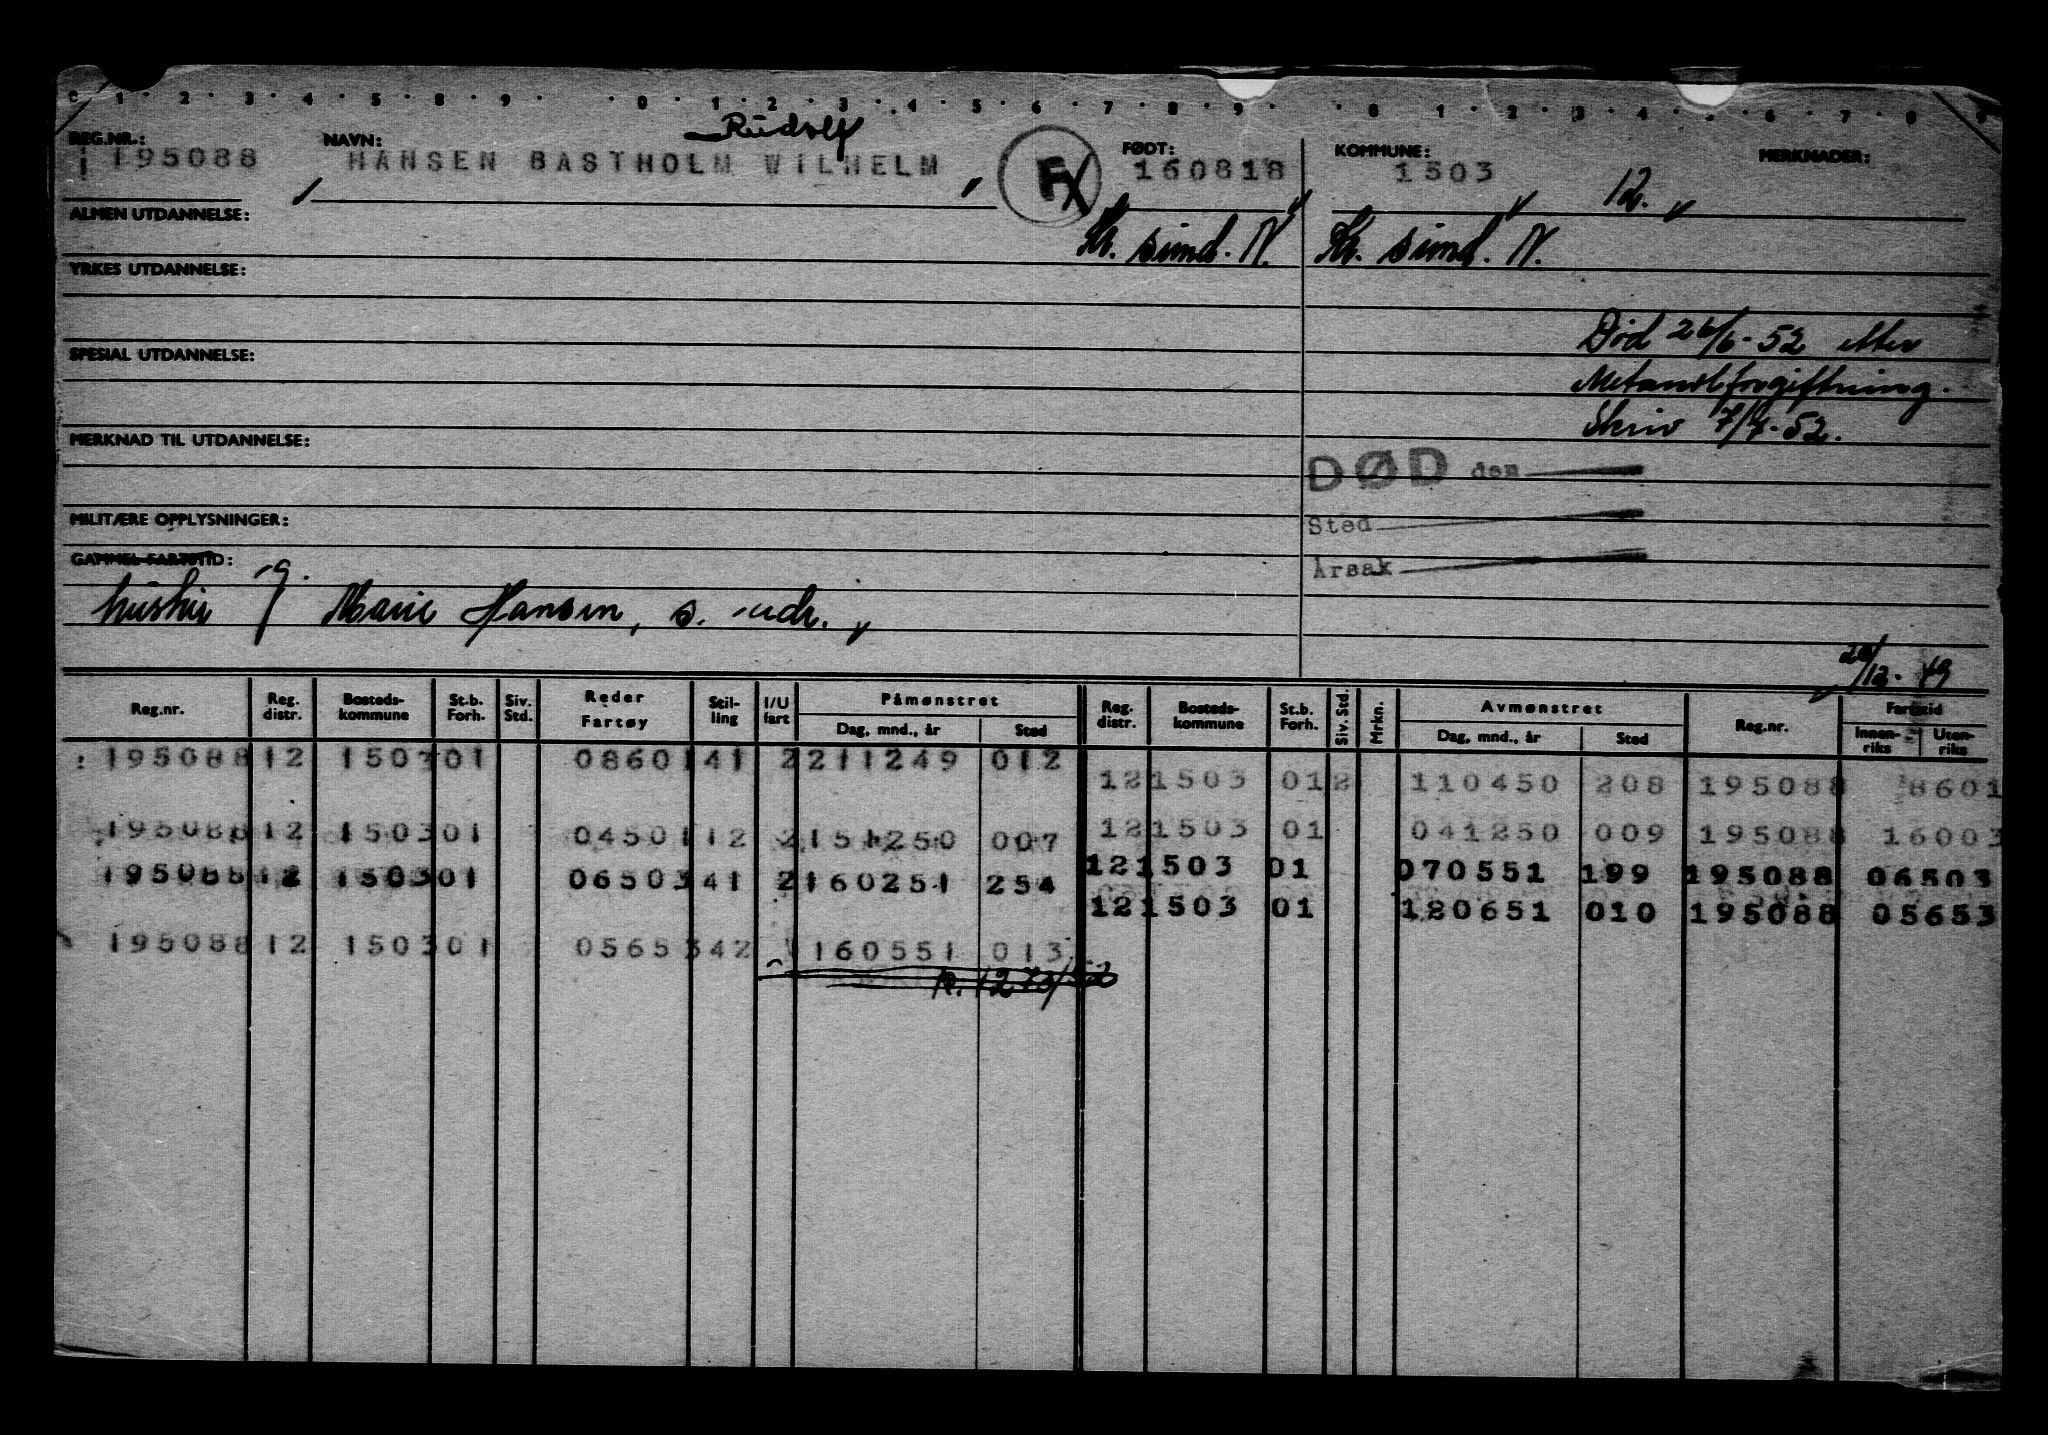 0 1 2 3 4 5 8 9 0 1 2 3 4 5 6 7 8 9 0 1 2 3 4 5 6 7 8 9
Rudolf
REG.NR.: NAVN: FØDT: KOMMUNE: MERKNADER:
195088 HANSEN BASTHOLM WILHELM F 160818 1503 12.
ALMEN UTDANNELSE: Kr. sund. N. Kr. sund. N.
YRKES UTDANNELSE:
Død 26/6-52 etter
SPESIAL UTDANNELSE:
Metanolforgiftning.
Skriv 7/7-52.
MERKNAD TIL UTDANNELSE:
DØD den
MILITÆRE OPPLYSNINGER: Sted
GAMMEL FARTSTID: Årsak
hustru g. Marie Hansen, s. adr.
20/12-49
Reg.nr. Reg. distr. Bosteds-kommune St.b. Forh. Siv. Std. Reder Fartøy Stil-ling I/U fart Påmønstret Dag, mnd., år Sted Reg. distr. Bosteds-kommune St.b. Forh. Siv. Std. Mrkn. Avmønstret Dag, mnd., år Sted Reg.nr. Fartstid Innen-riks Uten-riks
195088 12 1503 01 08601 41 2 211249 012
12 1503 01 2 110450 208 195088 8601
195088 12 1503 01 04501 12 2 151250 007
12 1503 01 041250 009 195088 16003
195088 12 1503 01 06503 41 2 160251 254
12 1503 01 070551 199 195088 06503
12 1503 01 120651 010 195088 05653
195088 12 1503 01 05653 42 160551 013